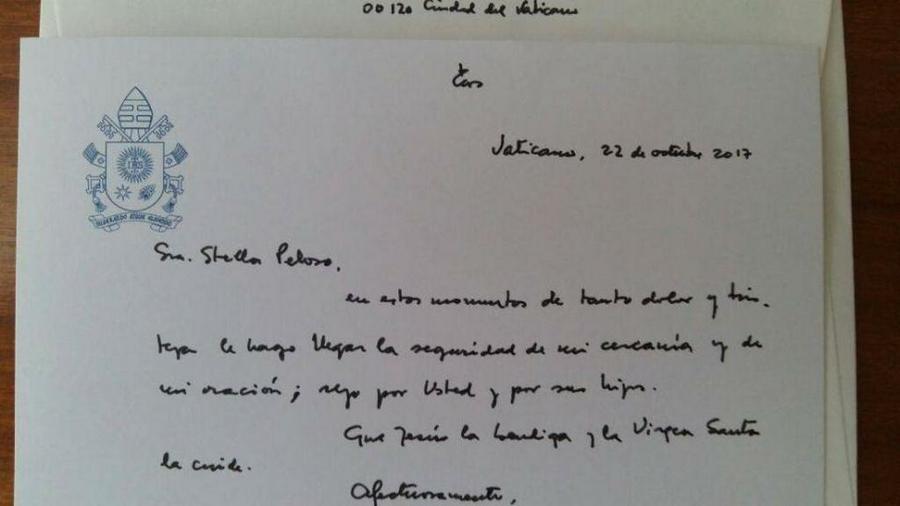 00120 Ciudad del Vaticano
Vaticano, 22 de octubre 2017
IHS
MISERANDO ATQUE ELIGENDO
Sra. Stella Peloso,
en estos momentos de tanto dolor y tris-
teza le hago llegar la seguridad de mi cercanía y de
mi oración; rezo por Usted y por sus hijos.
Que Jesús la bendiga y la Virgen Santa
la cuide.
Afectuosamente,